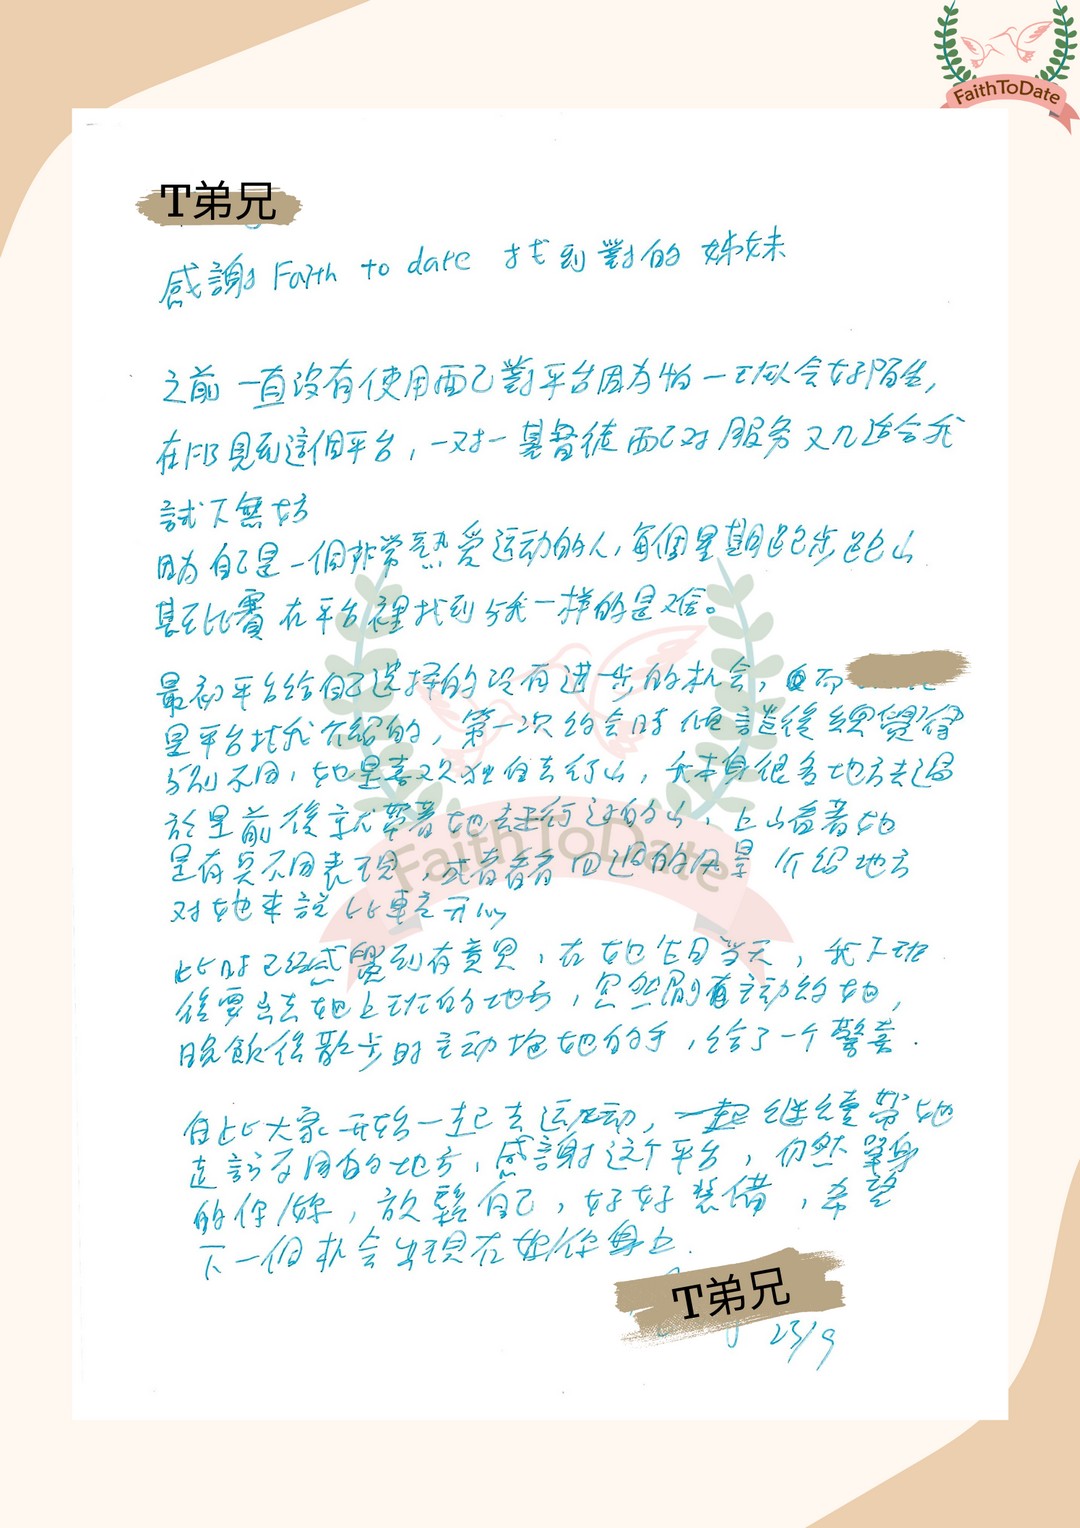 FaithToDate
T弟兄
感謝 Faith to date 找到對的姊妹
之前一直沒有使用配對平台因為怕一班人会好陌生,
在FB見到這個平台,一对一基督徒配对服务又几适合我
試下無妨
因為自己是一個非常熱爱运动的人,每個星期跑步跑山
甚至比賽在平台裡找到与我一样的是难。
最初平台给自己选择的没有进一步的机会,而
是平台找我介紹的,第一次约会時傾談後總覺得
与别不同,她是喜欢独自去行山,我本身很多地方去過
於是前後就帶著她去行过的山,上山看著她
是有與不同表現,或者看看四週的风景介绍地方
对她来說比較开心
此時已经感覺到有意思,在她生日当天,我下班
後要去她上班的地方,忽然間有主动约她,
晚飯後散步時主动拖她的手,给了一个驚喜.
自此大家开始一起去运动,一起继續带她
走訪不同的地方,感謝这个平台,仍然單身
的你/妳,放鬆自己,好好裝備,希望
下一個机会出現在妳/你身上.
T弟兄
23/9
FaithToDate